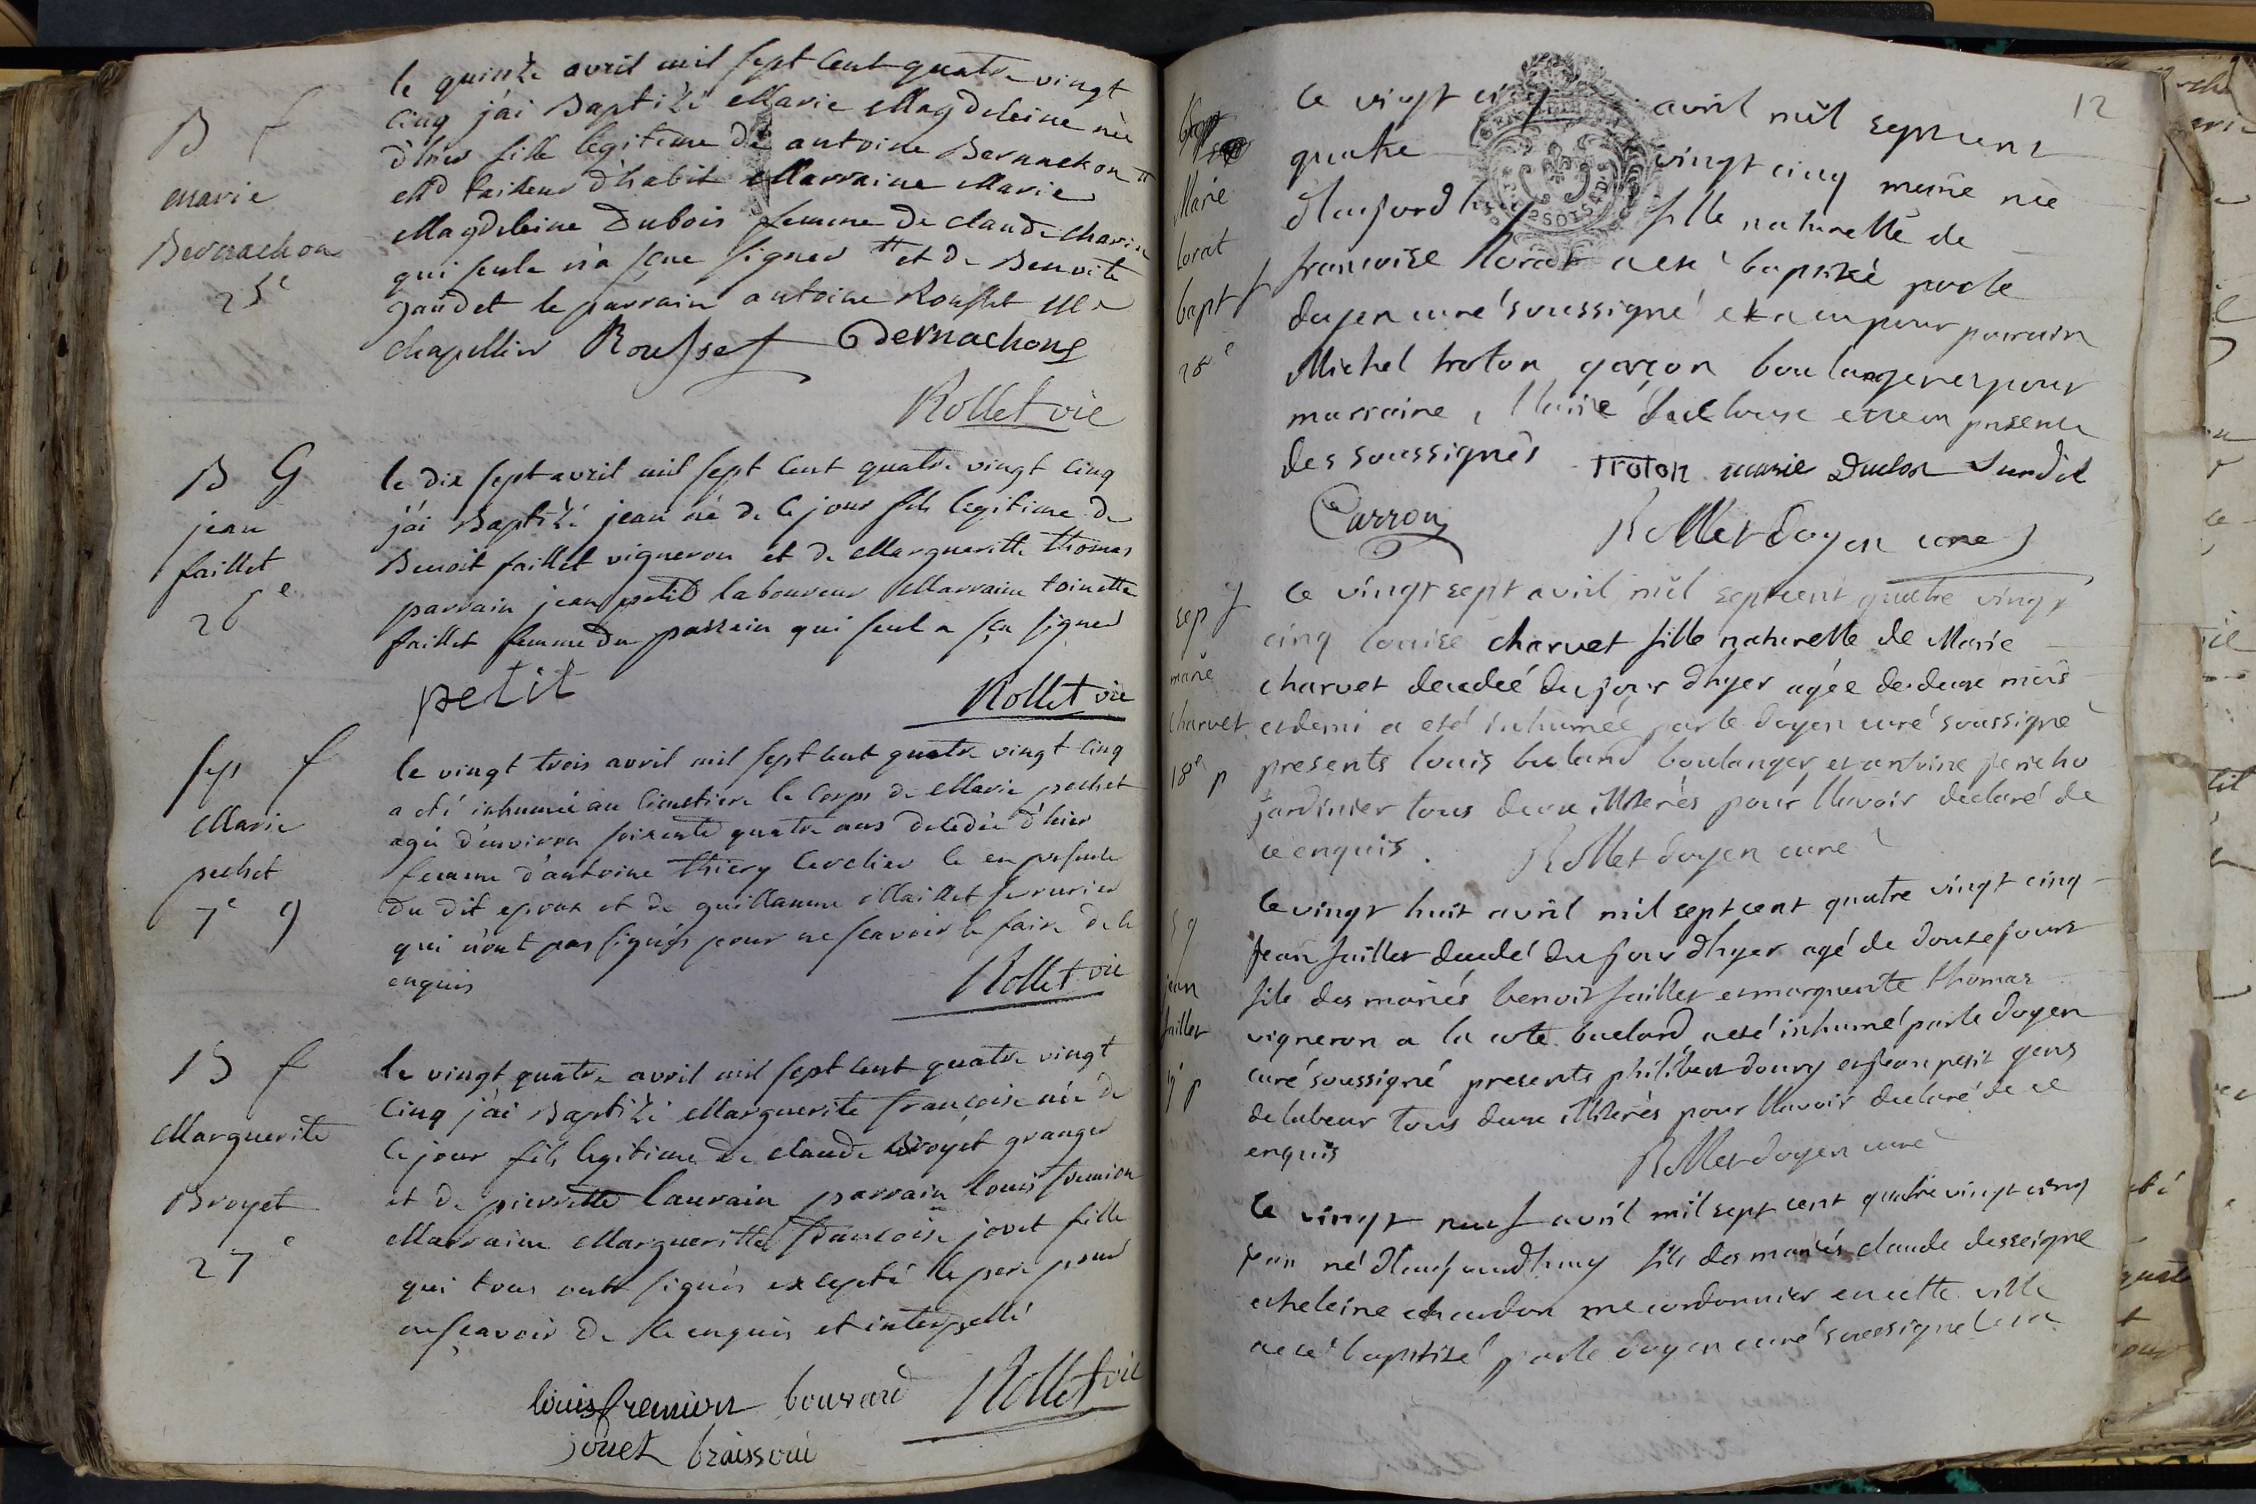 B f
marie
Bernachon
25e
le quinze avril mil sept cent quatre vingt
cinq j'ai Baptizé Marie Magdeleine née
d'hier fille legitime de antoine Bernachon
Md tailleur d'habit Marraine Marie
Magdeleine Dubois femme de claude
qui seule n'a sçue signer et de Benoite
le parrain antoine Rousset
chapellier Rousset Bernachon
Rollet vic
B G
jean
faillet
26e
le dix sept avril mil sept cent quatre vingt cinq
j'ai Baptizé jean né de ce jour fils legitime de
Benoit faillet vigneron et de Margueritte thomas
parrain jean petit laboureur Marraine toinette
faillet femme du parrain qui seul a sçu signer
petit
Rollet vic
sep f
Marie
pechet
7e g
le vingt trois avril mil sept cent quatre vingt cinq
a été inhumée au Cimetiere le Corps de Marie pechet
agée d'environ soixante quatre ans decedée d'hier
femme d'antoine thiery en presence
du dit epoux et de guillaume Maillet serrurier
qui n'ont pas signés pour ne sçavoir le faire de ce
enquis
Rollet vic
B f
Marguerite
Broyet
27e
le vingt quatre avril mil sept cent quatre vingt
cinq j'ai Baptizé Marguerite francoise née de
ce jour fils legitime de claude Broyet granger
et de pierrette laurain parrain louis fremion
Marraine Margueritte francoise jovet fille
qui tous ont signés excepté le pere pour
ne sçavoir de ce enquis et interpellé
louis fremion bouvard Rollet vic
jouet
12
Marie
lorat
bapt f
28e
Ce vingt cinq avril mil sept cent
quatre vingt cinq marie née
d'aujourd'huy fille naturelle de
francoise lorat a eté baptizée par le
doyen curé soussigné et a eu pour parrain
Michel troton garçon boulanger et pour
marraine Marie et en presence
des soussignés troton marie Duclos
Carron
Rollet doyen curé
sep f
marie
charvet
18e p
Ce vingt sept avril mil sept cent quatre vingt
cinq louise charvet fille naturelle de Marie
charvet decedeé du jour d'hyer agée de deux mois
et demi a eté inhumeé par le doyen curé soussigné
presents louis buland boulanger et antoine jericho
jardinier tous deux illiterés pour l'avoir declaré de
ce enquis. Rollet doyen curé
s g
jean
faillet
19e p
Ce vingt huit avril mil sept cent quatre vingt cinq
jean faillet decedé du jour d'hyer agé de douze jours
fils des mariés benoit faillet et marguerite thomas
vigneron a la cote a eté inhumé par le doyen
curé soussigné presents philibert et jean petit gens
de labeur tous deux illiterés pour l'avoir declaré de ce
enquis
Rollet doyen curé
Ce vingt neuf avril mil sept cent quatre vingt cinq
jean né d'aujourdhuy fils des mariés claude desseigne
me cordonnier en cette ville
a eté baptizé par le doyen curé soussigné